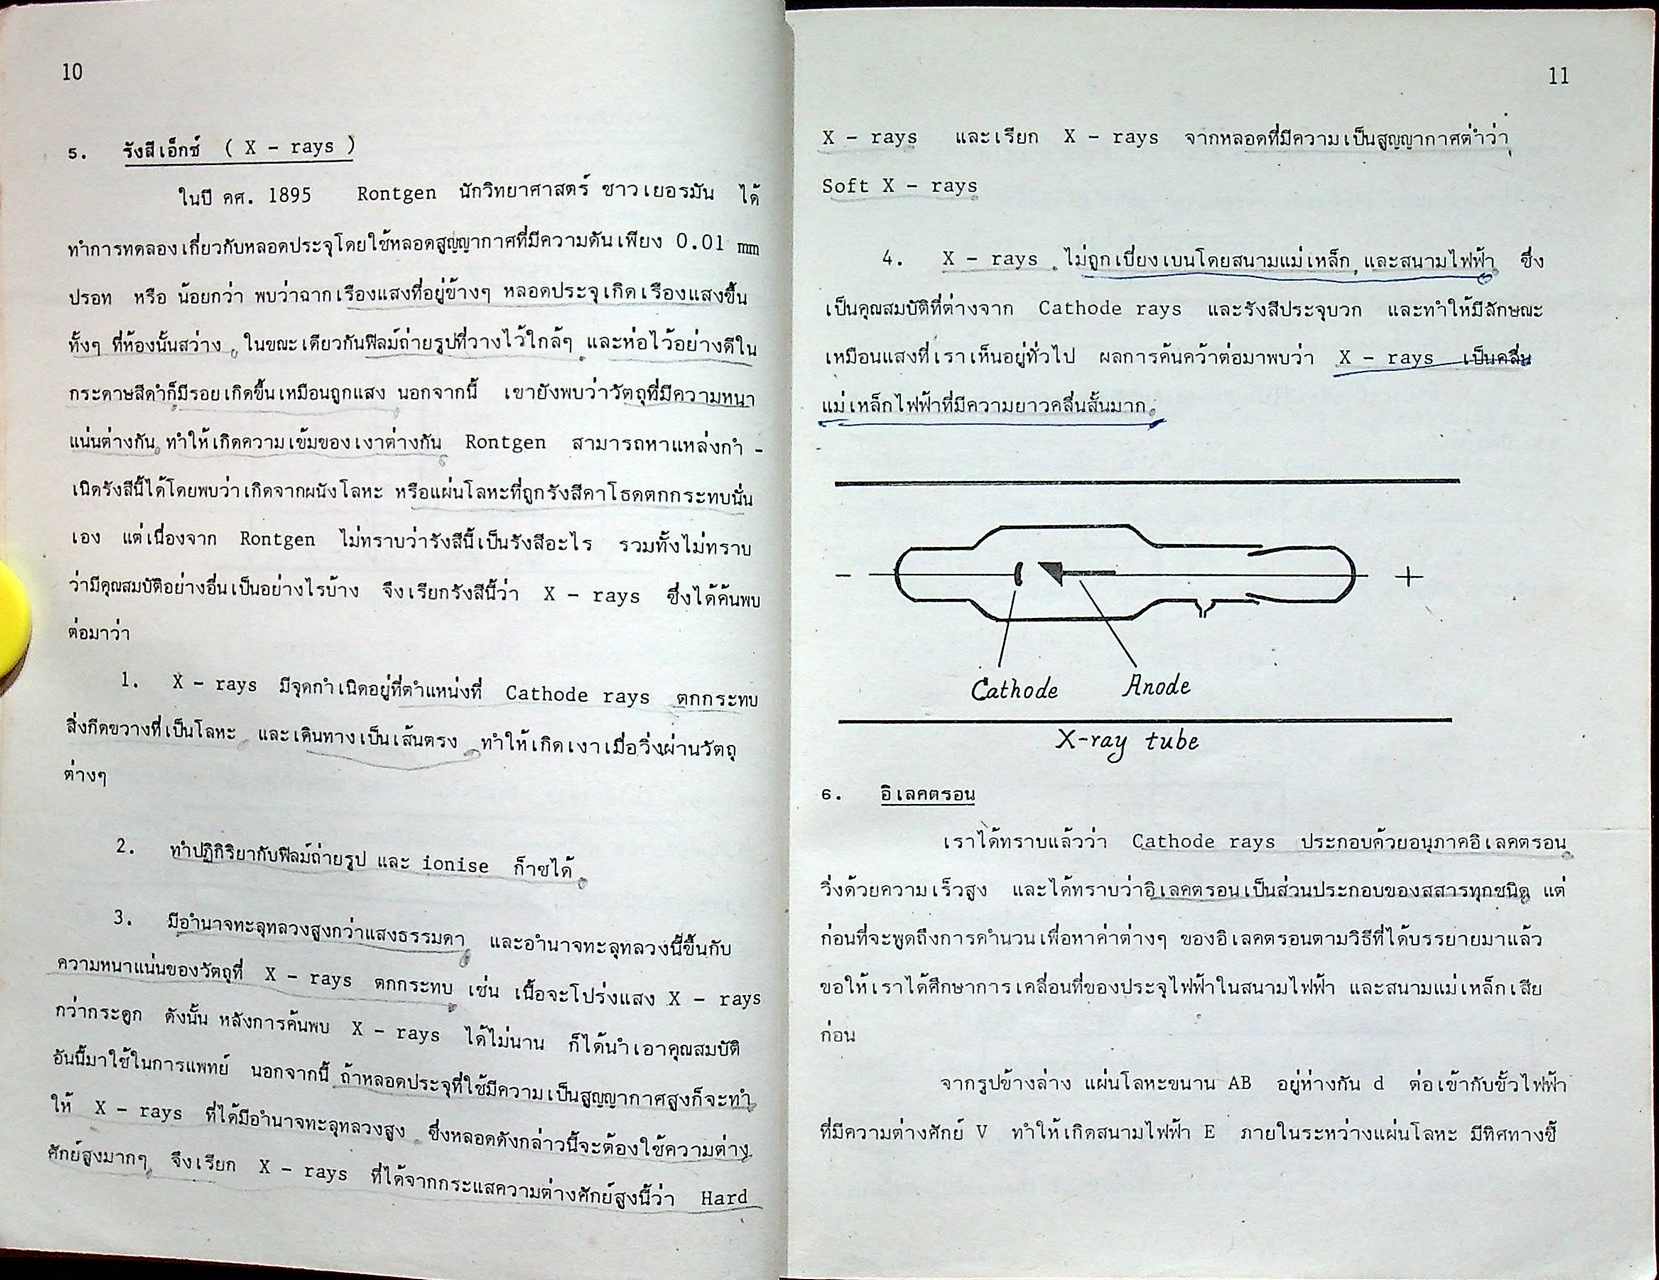 10
5. รังสีเอ็กซ์ ( X - rays )
ในปี คศ. 1895 Rontgen นักวิทยาศาสตร์ ชาวเยอรมัน ได้
ทำการทดลองเกี่ยวกับหลอดประจุโดยใช้หลอดสูญญากาศที่มีความดันเพียง 0.01 mm
ปรอท หรือ น้อยกว่า พบว่าฉากเรืองแสงที่อยู่ข้างๆ หลอดประจุเกิดเรืองแสงขึ้น
ทั้งๆ ที่ห้องนั้นสว่าง ในขณะเดียวกันฟิลม์ถ่ายรูปที่วางไว้ใกล้ๆ และห่อไว้อย่างดีใน
กระดาษสีดำก็มีรอยเกิดขึ้นเหมือนถูกแสง นอกจากนี้ เขายังพบว่าวัตถุที่มีความหนา
แน่นต่างกัน ทำให้เกิดความเข้มของเงาต่างกัน Rontgen สามารถหาแหล่งกำ -
เนิดรังสีนี้ได้โดยพบว่าเกิดจากผนังโลหะ หรือแผ่นโลหะที่ถูกรังสีคาโธดตกกระทบนั่น
เอง แต่เนื่องจาก Rontgen ไม่ทราบว่ารังสีนี้เป็นรังสีอะไร รวมทั้งไม่ทราบ
ว่ามีคุณสมบัติอย่างอื่นเป็นอย่างไรบ้าง จึงเรียกรังสีนี้ว่า X - rays ซึ่งได้ค้นพบ
ต่อมาว่า
1. X - rays มีจุดกำเนิดอยู่ที่ตำแหน่งที่ Cathode rays ตกกระทบ
สิ่งกีดขวางที่เป็นโลหะ และเดินทางเป็นเส้นตรง ทำให้เกิดเงาเมื่อวิ่งผ่านวัตถุ
ต่างๆ
2. ทำปฏิกิริยากับฟิลม์ถ่ายรูป และ ionise ก๊าซได้
3. มีอำนาจทะลุทลวงสูงกว่าแสงธรรมดา และอำนาจทะลุทลวงนี้ขึ้นกับ
ความหนาแน่นของวัตถุที่ X - rays ตกกระทบ เช่น เนื้อจะโปร่งแสง X - rays
กว่ากระดูก ดังนั้น หลังการค้นพบ X - rays ได้ไม่นาน ก็ได้นำเอาคุณสมบัติ
อันนี้มาใช้ในการแพทย์ นอกจากนี้ ถ้าหลอดประจุที่ใช้มีความเป็นสูญญากาศสูงก็จะทำ
ให้ X - rays ที่ได้มีอำนาจทะลุทลวงสูง ซึ่งหลอดดังกล่าวนี้จะต้องใช้ความต่าง
ศักย์สูงมากๆ จึงเรียก X - rays ที่ได้จากกระแสความต่างศักย์สูงนี้ว่า Hard
11
X - rays และเรียก X - rays จากหลอดที่มีความเป็นสูญญากาศต่ำว่า
Soft X - rays
4. X - rays ไม่ถูกเบี่ยงเบนโดยสนามแม่เหล็ก และสนามไฟฟ้า ซึ่ง
เป็นคุณสมบัติที่ต่างจาก Cathode rays และรังสีประจุบวก และทำให้มีลักษณะ
เหมือนแสงที่เราเห็นอยู่ทั่วไป ผลการค้นคว้าต่อมาพบว่า X - rays เป็นคลื่น
แม่เหล็กไฟฟ้าที่มีความยาวคลื่นสั้นมาก
- +
Cathode Anode
X-ray tube
6. อิเลคตรอน
เราได้ทราบแล้วว่า Cathode rays ประกอบด้วยอนุภาคอิเลคตรอน
วิ่งด้วยความเร็วสูง และได้ทราบว่าอิเลคตรอนเป็นส่วนประกอบของสสารทุกชนิด แต่
ก่อนที่จะพูดถึงการคำนวนเพื่อหาค่าต่างๆ ของอิเลคตรอนตามวิธีที่ได้บรรยายมาแล้ว
ขอให้เราได้ศึกษาการเคลื่อนที่ของประจุไฟฟ้าในสนามไฟฟ้า และสนามแม่เหล็กเสีย
ก่อน
จากรูปข้างล่าง แผ่นโลหะขนาน AB อยู่ห่างกัน d ต่อเข้ากับขั้วไฟฟ้า
ที่มีความต่างศักย์ V ทำให้เกิดสนามไฟฟ้า E ภายในระหว่างแผ่นโลหะ มีทิศทางชี้